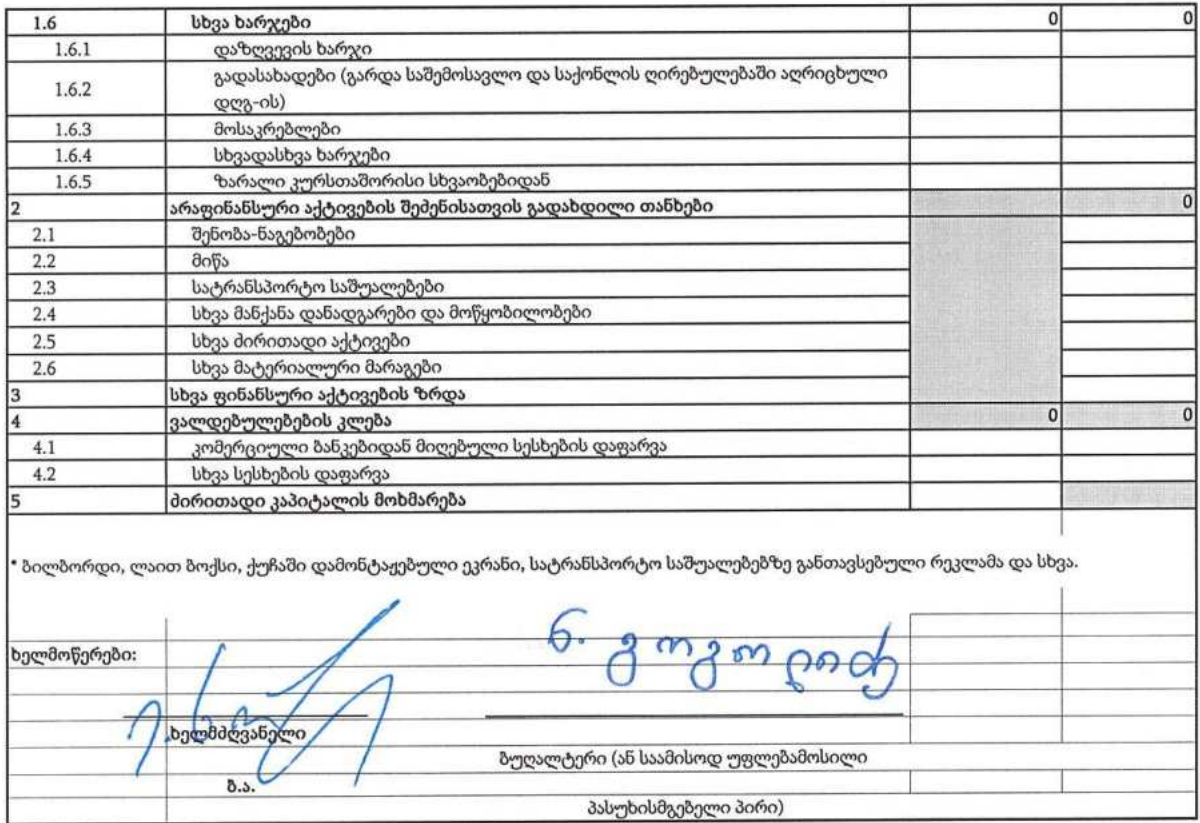 1.6 სხვა ხარჯები 0 0
1.6.1 დაზღვევის ხარჯი
1.6.2 გადასახადები (გარდა საშემოსავლო და საქონლის ღირებულებაში აღრიცხული
დღგ-ის)
1.6.3 მოსაკრებლები
1.6.4 სხვადასხვა ხარჯები
1.6.5 ზარალი კურსთაშორისი სხვაობებიდან
2 არაფინანსური აქტივების შეძენისათვის გადახდილი თანხები 0
2.1 შენობა-ნაგებობები
2.2 მიწა
2.3 სატრანსპორტო საშუალებები
2.4 სხვა მანქანა დანადგარები და მოწყობილობები
2.5 სხვა ძირითადი აქტივები
2.6 სხვა მატერიალური მარაგები
3 სხვა ფინანსური აქტივების ზრდა
4 ვალდებულებების კლება 0 0
4.1 კომერციული ბანკებიდან მიღებული სესხების დაფარვა
4.2 სხვა სესხების დაფარვა
5 ძირითადი კაპიტალის მოხმარება
* ბილბორდი, ლაით ბოქსი, ქუჩაში დამონტაჟებული ეკრანი, სატრანსპორტო საშუალებებზე განთავსებული რეკლამა და სხვა.
ნ. გოგოლიძე
ხელმოწერები:
ხელმძღვანელი
ბუღალტერი (ან საამისოდ უფლებამოსილი
ბ.ა.
პასუხისმგებელი პირი)